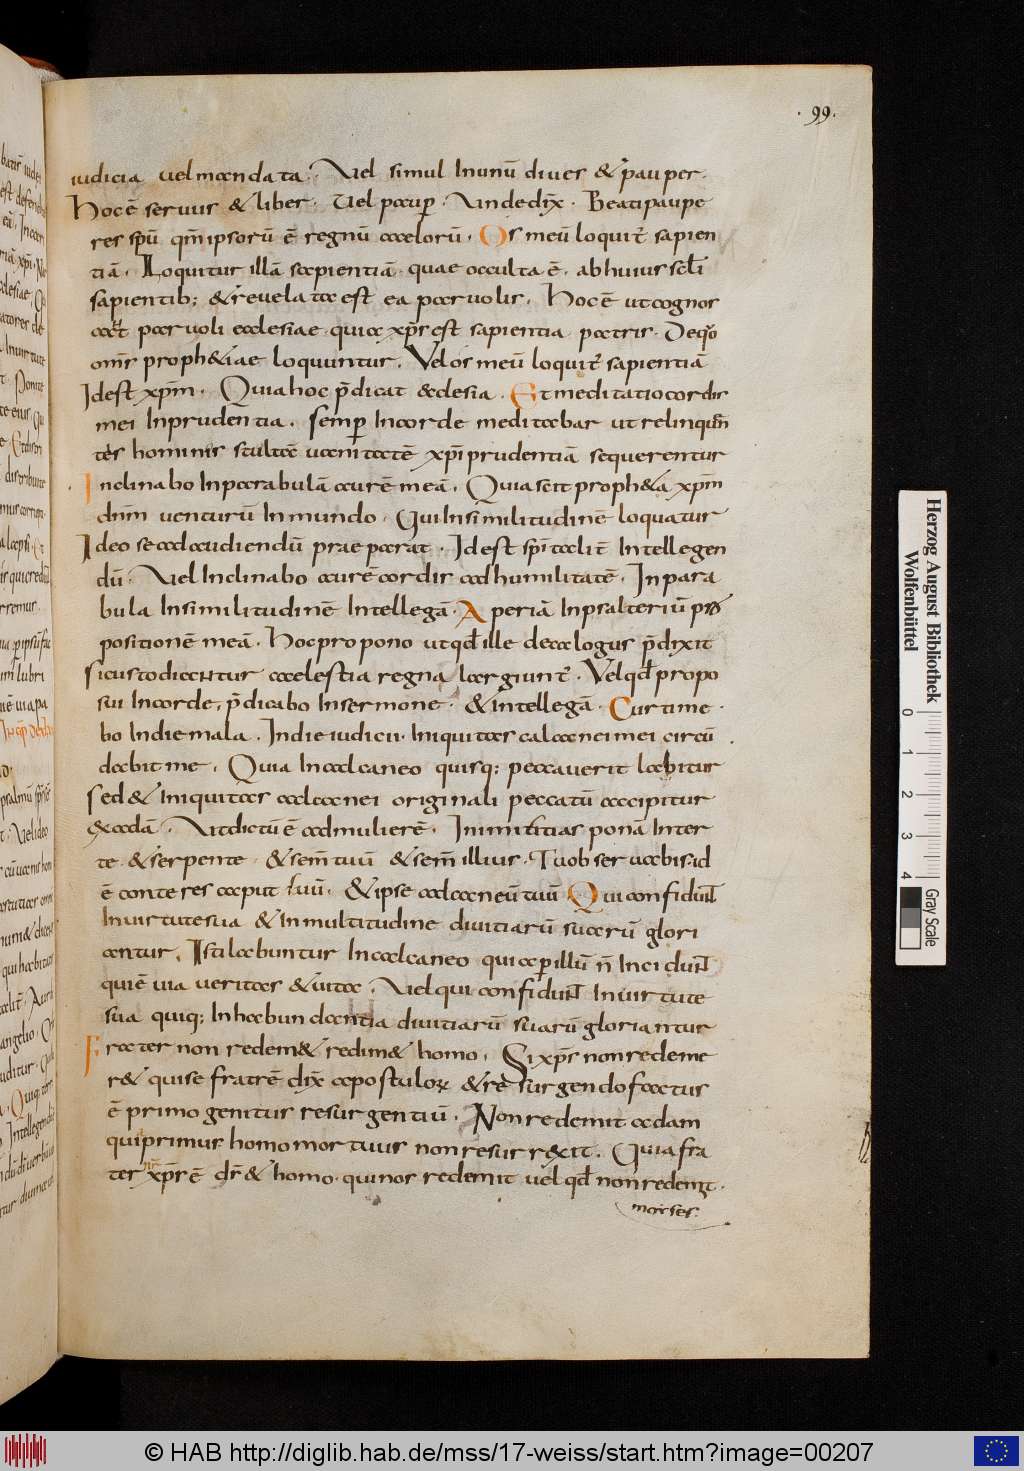 · 99 ·
iudicia uel mandata · Uel simul Inunū diues & pauper ·
Hoc ē seruus & liber · Uel paup · Unde dix̄ · Beati paupe
res spū qm̄ ipsorū ē regnū caelorū · Os meū loquit̄ sapien
tiā · Loquitur illā sapientiā quae occulta ē · ab huius scl̄i
sapientib; & reuelata est ea paruolis · Hoc ē ut cognos
cat paruoli ecclesiae quia xp̄s est sapientia patris · De quo
om̄s proph&iae loquuntur · Uel os meū loquit̄ sapientiā
Idest xp̄m · Quia hoc p̄dicat &clesia · Et meditatio cordis
mei Inprudentia · semp Incorde meditabar ut relinquen
tes hominis stultā uanitatē xp̄i prudentiā sequerentur
Inclinabo Inparabulā aurē meā · Quia scit proph&a xp̄m
dn̄m uenturū Inmundo · Qui Insimilitudinē loquatur
Ideo se ad audiendū praeparat · Idest sp̄italit̄ Intellegen
dū · Uel Inclinabo aurē cordis ad humilitatē · In para
bula Insimilitudinē Intellegā · Aperiā Inpsalteriū pro
positionē meā · Hoc propono ut qd ille decalogus p̄dixit
si custodiantur caelestia regna largiunt̄ · Uel qd propo
sui Incorde, p̄dicabo Insermone · & intellegā · Cur time
bo Indie mala · Indie iudicii · Iniquitas calcanei mei circū
dabit me · Quia Incalcaneo quisq; peccauerit labitur
sed & Iniquitas calcanei originali peccatū accipitur
ex adā · Ut dictū ē admulierē · Inimititias ponā Inter
te · & serpente · & sem̄ tuū & sem̄ illius · Tu obseruabis · id
ē conteres caput tuū · & ipse calcaneū tuū Qui confidunt
Inuirtute sua & In multitudine diuitiarū suarū glori
antur · Isti labuntur Incalcaneo qui ap illū n̄ Incidunt
qui ē uia ueritas & uita · Uel qui confidunt Inuirtute
sua quiq; Inhabundantia diuitiarū suarū gloriantur
Frater non redem& redim& homo · Si xp̄s non redeme
r& qui se fratrē dix̄ apostulorum & resurgendo factus
ē primogenitus resurgentiū · Non redemit adam
qui primus homo mortuus non resurrexit · Quia fra
ter xp̄s ē ds̄ & homo · qui nos redemit uel qd non redemit ·
moises ·
Herzog August Bibliothek
Wolfenbüttel
0 1 2 3 4
Gray Scale
© HAB http://diglib.hab.de/mss/17-weiss/start.htm?image=00207